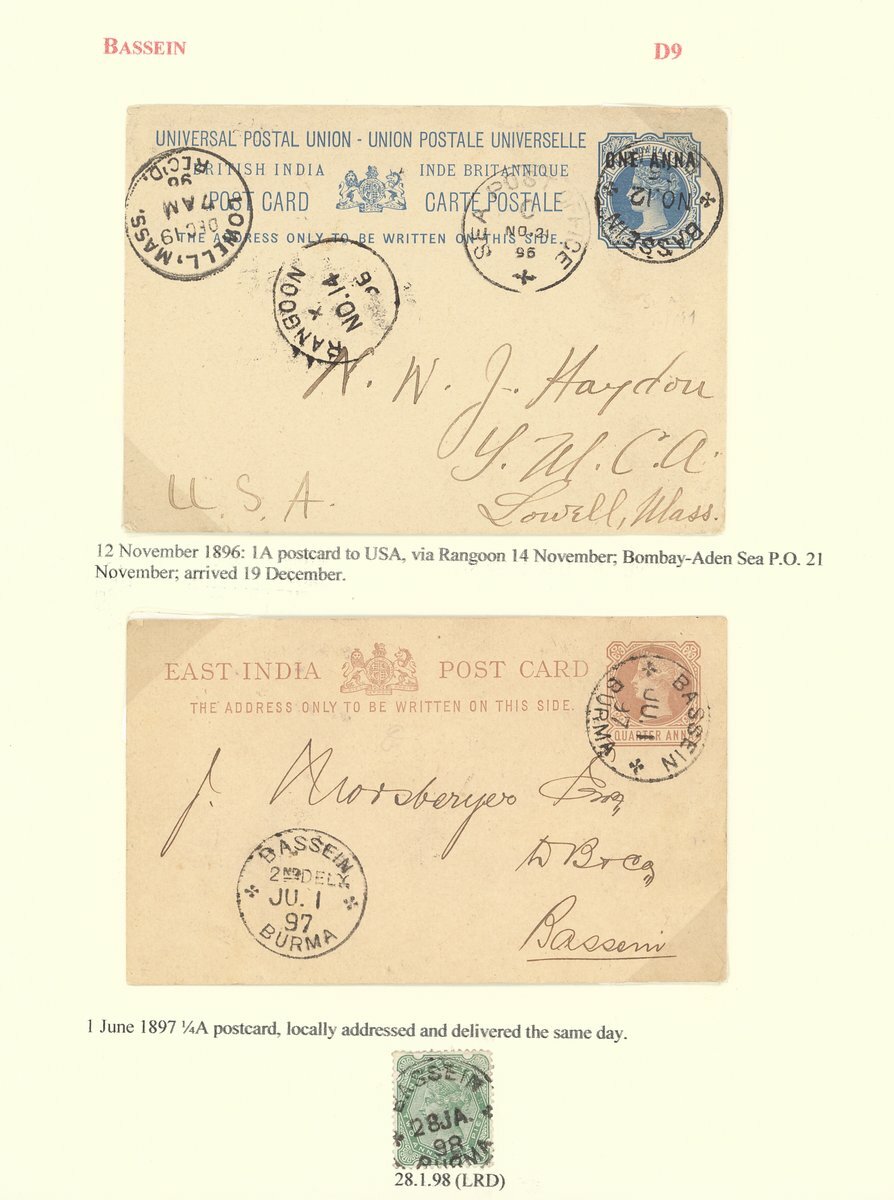 BASSEIN
D9
UNIVERSAL POSTAL UNION - UNION POSTALE UNIVERSELLE
BRITISH INDIA INDE BRITANNIQUE
POST CARD CARTE POSTALE
THE ADDRESS ONLY TO BE WRITTEN ON THIS SIDE.
ONE ANNA
BASSEIN
NO.12
LOWELL, MASS.
DEC 19
7 AM
96
REC'D.
SEA POST OFFICE
C
NO.21
96
RANGOON
NO.14
96
N. W. J. Haydon
Y. M. C. A.
Lowell, Mass.
U. S. A.
12 November 1896: 1A postcard to USA, via Rangoon 14 November; Bombay-Aden Sea P.O. 21
November; arrived 19 December.
EAST INDIA POST CARD
THE ADDRESS ONLY TO BE WRITTEN ON THIS SIDE.
QUARTER ANNA
BASSEIN
JU. 1
97
BURMA
J. Esq
Bassein
BASSEIN
2ND DELY.
JU. 1
97
BURMA
1 June 1897 ¼A postcard, locally addressed and delivered the same day.
BASSEIN
28 JA.
98
BURMA
28.1.98 (LRD)